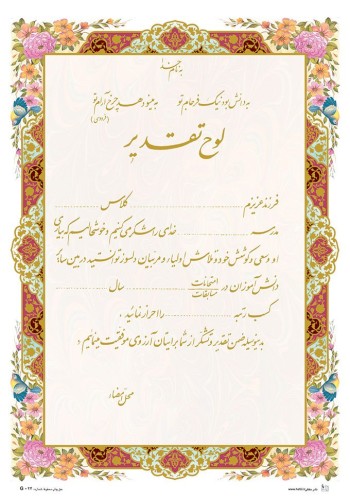 به نام خدا
به دانش بود نیک فرجام تو به مینو دهد چرخ آرام تو
(فردوسی)
لوح تقدیر
فرزند عزیزم کلاس
مدرسه خدای را شکر می‌کنیم و خوشحالیم که به یاری
او و سعی و کوشش خود و تلاش اولیاء و مربیان دلسوز توانستید در بین سایر
دانش آموزان در امتحانات مسابقات سال
کسب رتبه را احراز نمائید.
بدینوسیله ضمن تقدیر و تشکر از شما برایتان آرزوی موفقیت می‌نمائیم.
محل امضاء